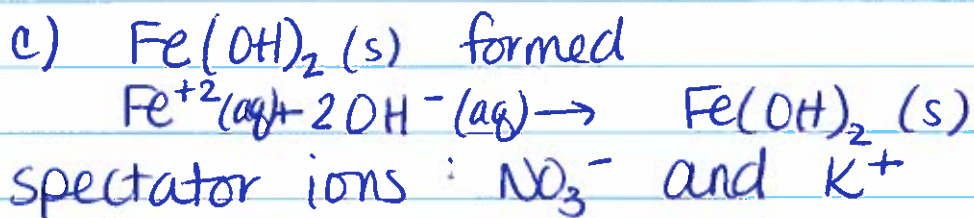 c) Fe(OH)₂ (s) formed
Fe⁺²(aq)+ 2OH⁻(aq)→ Fe(OH)₂ (s)
spectator ions : NO₃⁻ and K⁺